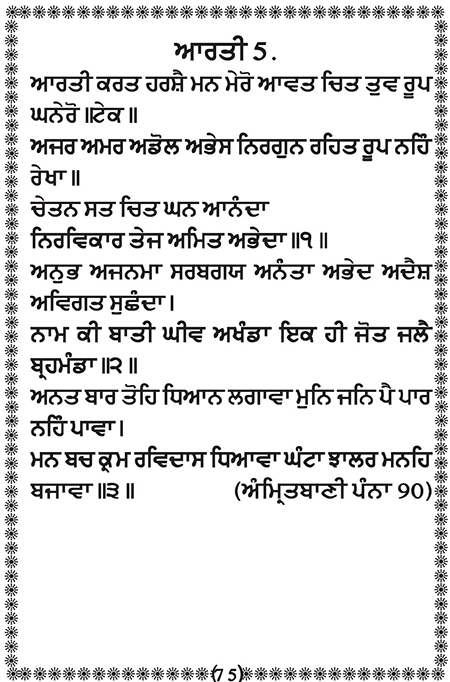 ਆਰਤੀ 5.
ਆਰਤੀ ਕਰਤ ਹਰਸ਼ੈ ਮਨ ਮੇਰੋ ਆਵਤ ਚਿਤ ਤੁਵ ਰੂਪ
ਘਨੇਰੋ ॥ਟੇਕ॥
ਅਜਰ ਅਮਰ ਅਡੋਲ ਅਭੇਸ ਨਿਰਗੁਨ ਰਹਿਤ ਰੂਪ ਨਹਿੰ
ਰੇਖਾ॥
ਚੇਤਨ ਸਤ ਚਿਤ ਘਨ ਆਨੰਦਾ
ਨਿਰਵਿਕਾਰ ਤੇਜ ਅਮਿਤ ਅਭੇਦਾ॥੧॥
ਅਨੁਭ ਅਜਨਮਾ ਸਰਬਗਯ ਅਨੰਤਾ ਅਭੇਦ ਅਦੈਸ਼
ਅਵਿਗਤ ਸੁਛੰਦਾ।
ਨਾਮ ਕੀ ਬਾਤੀ ਘੀਵ ਅਖੰਡਾ ਇਕ ਹੀ ਜੋਤ ਜਲੈ
ਬ੍ਰਹਮੰਡਾ॥੨॥
ਅਨਤ ਬਾਰ ਤੋਹਿ ਧਿਆਨ ਲਗਾਵਾ ਮੁਨਿ ਜਨਿ ਪੈ ਪਾਰ
ਨਹਿੰ ਪਾਵਾ।
ਮਨ ਬਚ ਕ੍ਰਮ ਰਵਿਦਾਸ ਧਿਆਵਾ ਘੰਟਾ ਝਾਲਰ ਮਨਹਿ
ਬਜਾਵਾ॥੩॥ (ਅੰਮ੍ਰਿਤਬਾਣੀ ਪੰਨਾ 90)
(75)